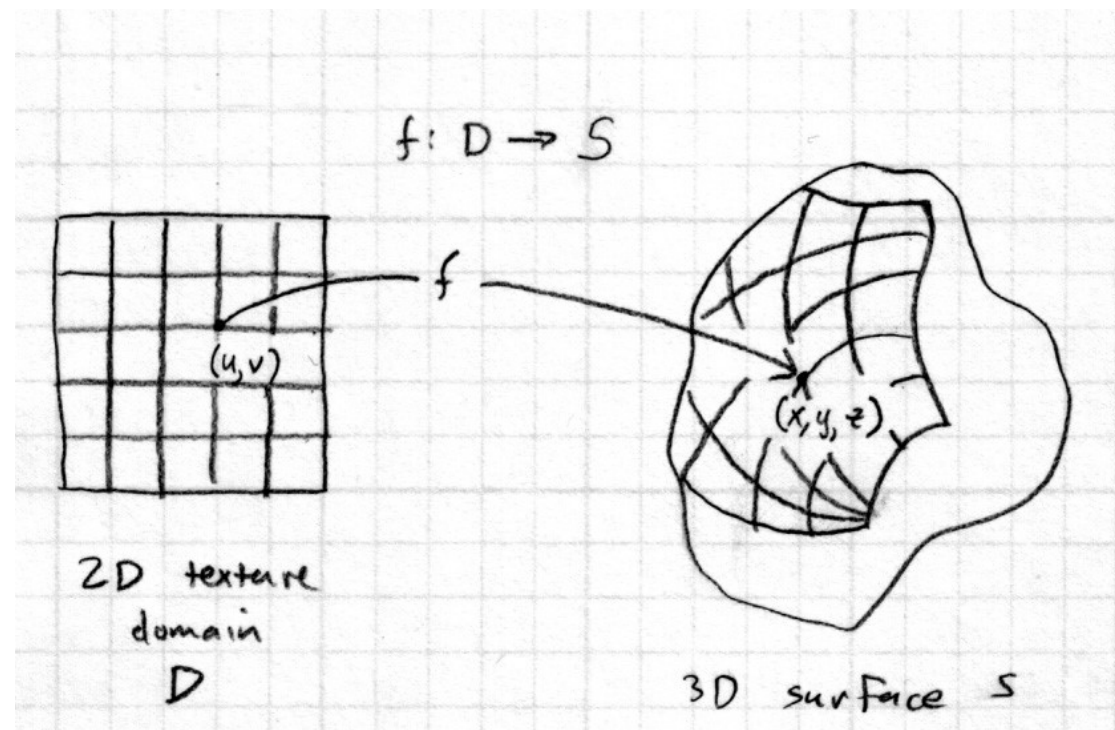 f: D → S
f
(u,v)
(x,y,z)
2D texture
domain
D
3D surface S